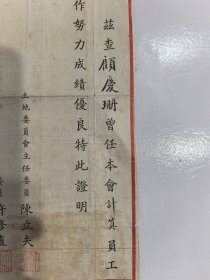 茲查顧慶珊曾任本會計算員工
作努力成績優良特此證明
土地委員會主任委員陳立夫